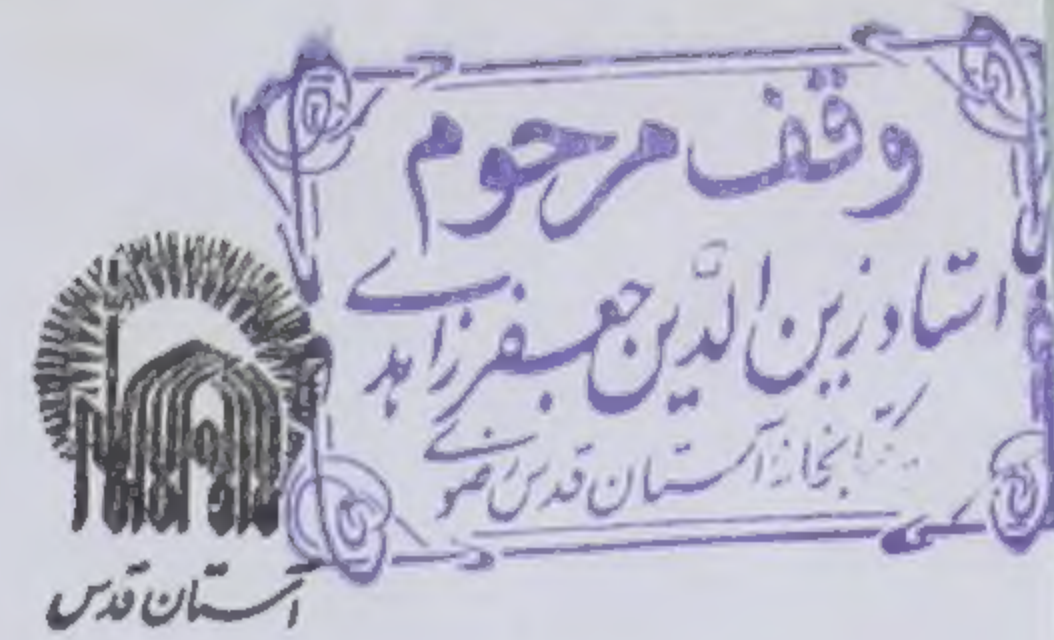 وقف مرحوم
استاد زین الدّین جعفر زاهدی
کتابخانه آستان قدس رضوی
آستان قدس